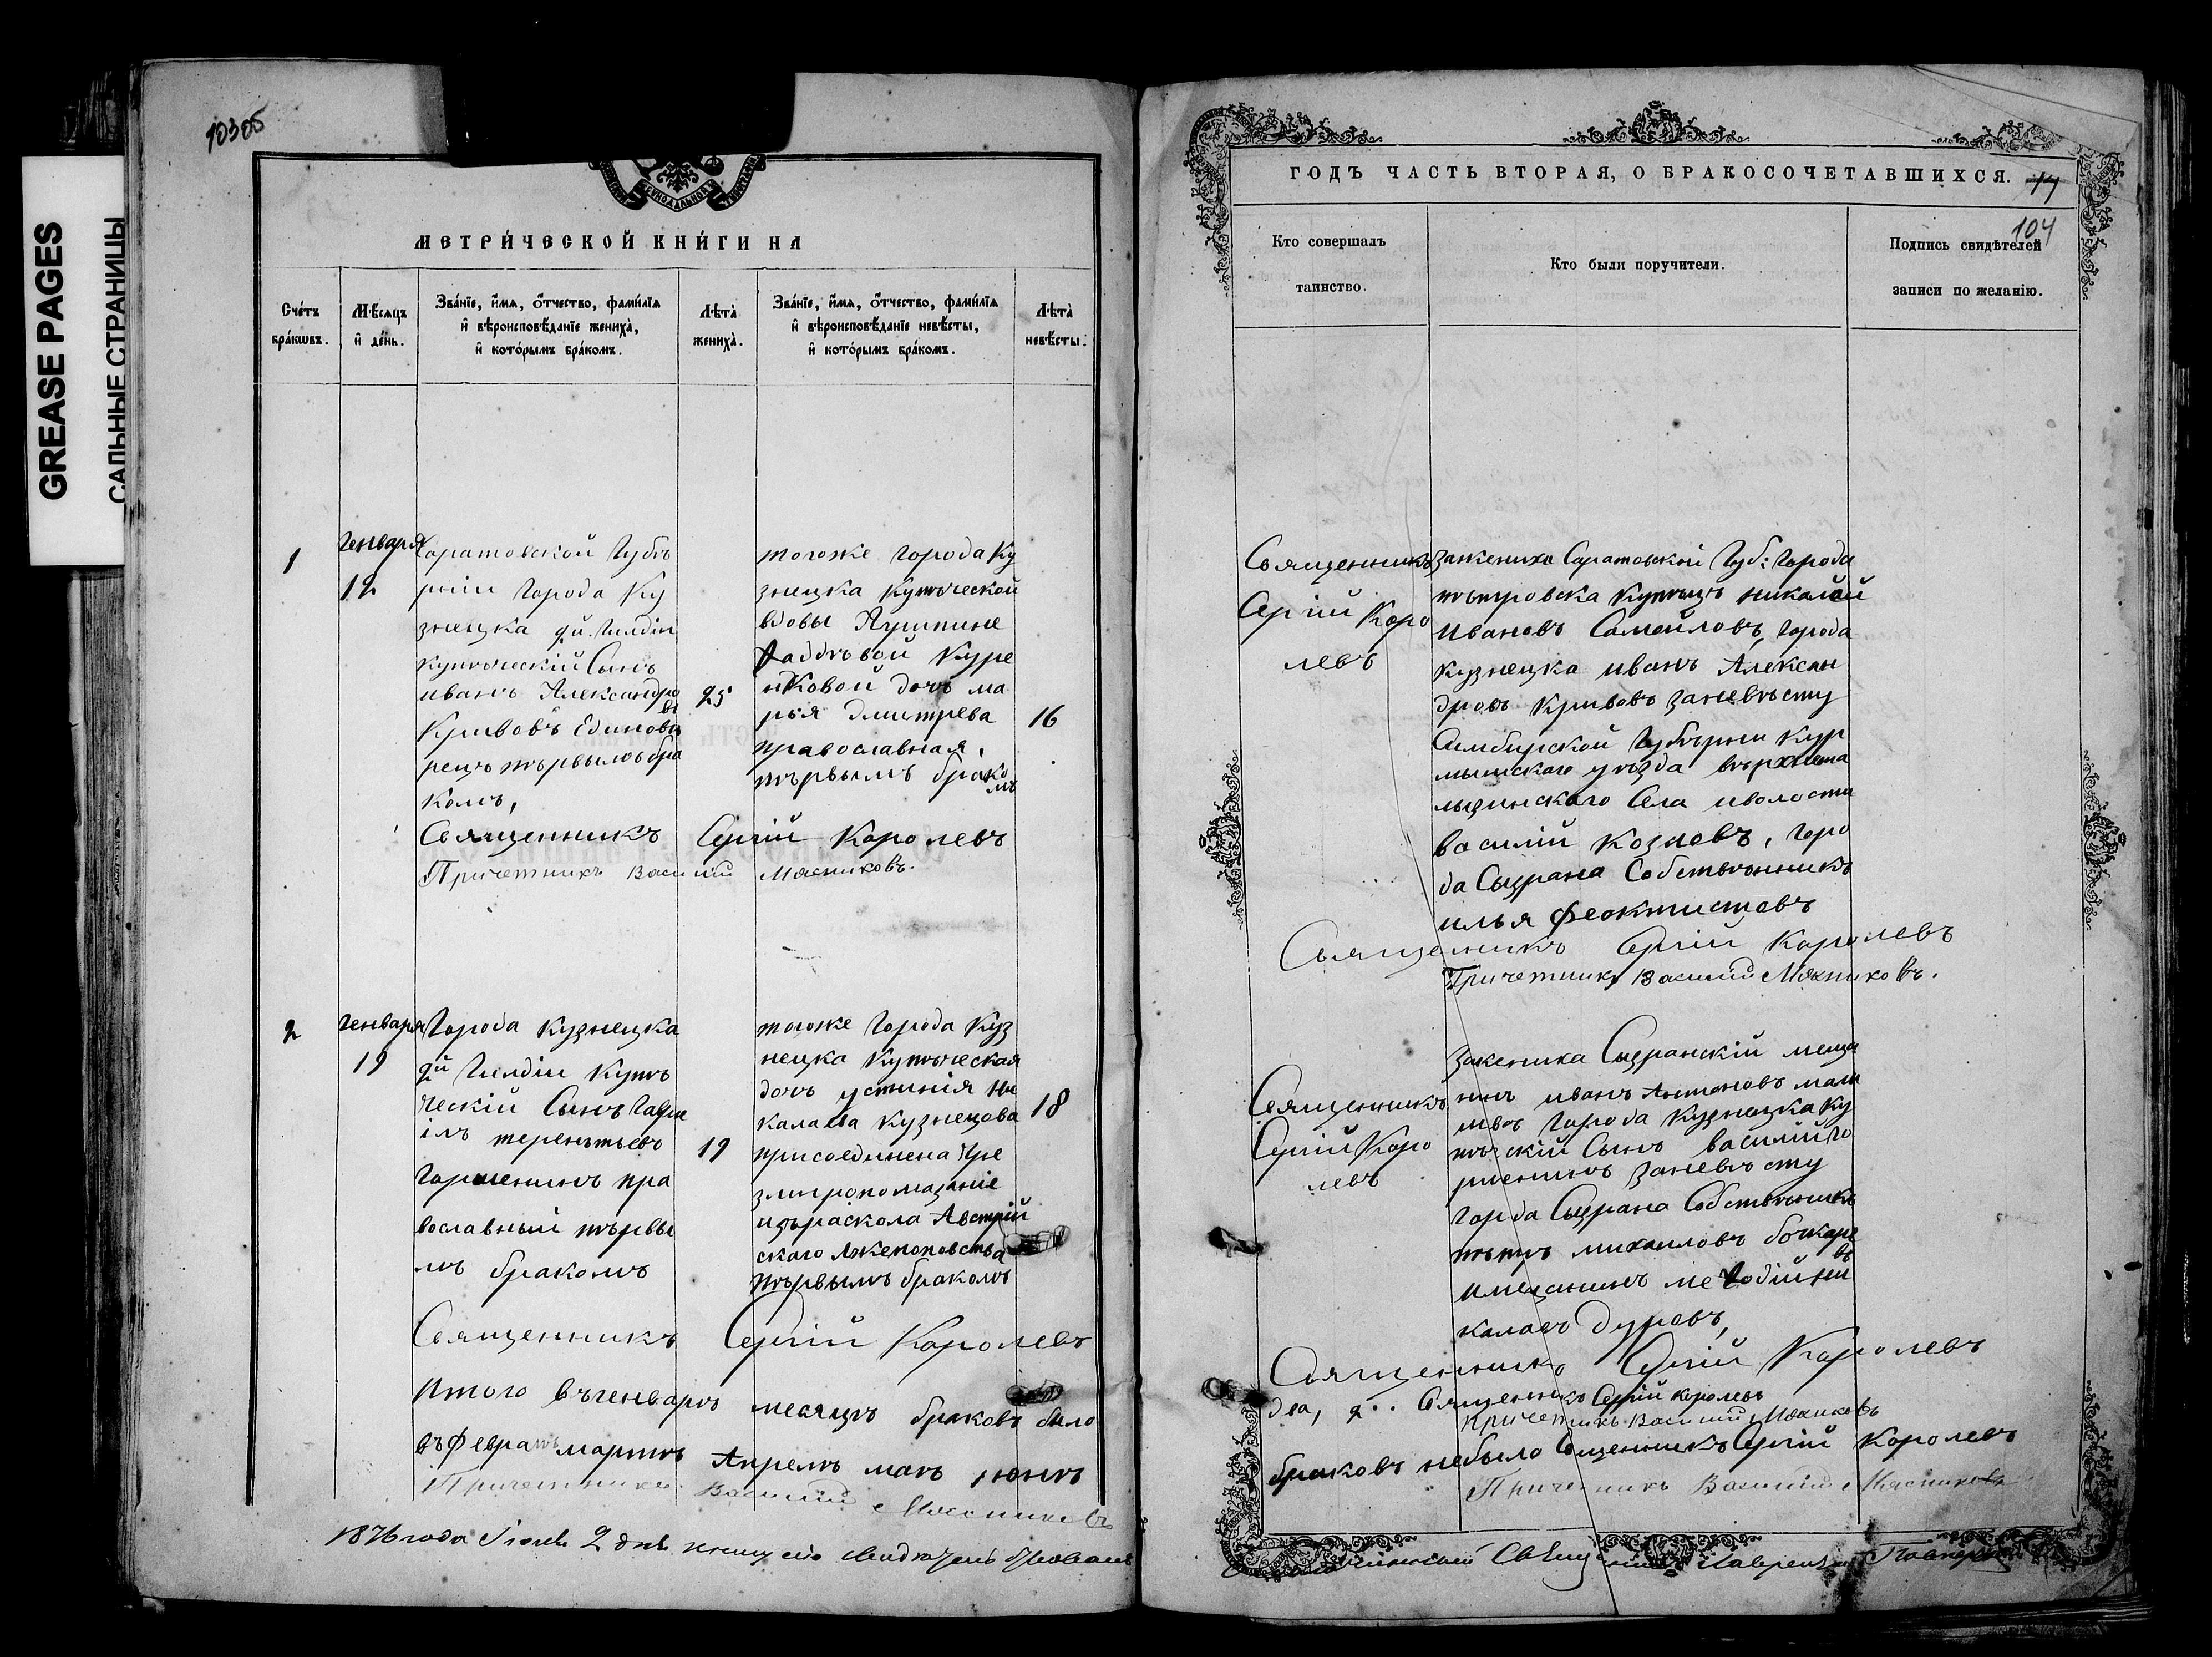 10305
GREASE PAGES
САЛЬНЫЕ СТРАНИЦЫ
МЕТРИЧЕСКОЙ КНИГИ НА
Счетъ браковъ.
Мѣсяцъ и день.
Званіе, имя, отчество, фамилія
и вѣроисповѣданіе жениха,
и которымъ бракомъ.
Лѣта жениха.
Званіе, имя, отчество, фамилія
и вѣроисповѣданіе невѣсты,
и которымъ бракомъ.
Лѣта невѣсты.
1
Генваря
12
Саратовской Губѣ
рніи Города Ку
знецка 2й. Гилдіи
купѣческій Сынъ
иванъ Александро
въ
Кривовъ Единовѣ
рецъ пѣрвымъ бра
комъ,
25
тогоже города Ку
знецка Купѣческой
вдовы
Фаддѣвой Куре
нковой дочъ ма
рья Дмитрева
православная,
пѣрвымъ брако
мъ
16
Священникъ Сергій Королевъ
Причетникъ Василій Мясниковъ.
2
Генваря
19
Города Кузнецка
2й Гилдіи Купѣ
ческій Сынъ Гаври
ілъ терентьевъ
Горшенинъ пра
вославный пѣрвы
мъ бракомъ
19
тогоже Города Куз
нецка Купѣческая
дочъ устинія Ни
калаева Кузнецова
присоединена Чре
змиропомазаніе
изъраскола Австрій
скаго Лжепоповства
пѣрвымъ бракомъ
18
Священникъ Сергій Королевъ
Итого въгенварѣ месяцѣ браковъ было
въфевралѣ мартѣ Апрелѣ маѣ іюнѣ
Причетникъ Василій Мясниковъ
1876 года Іюля 2 дня книгу сію свидѣтельствовалъ
ГОДЪ ЧАСТЬ ВТОРАЯ, О БРАКОСОЧЕТАВШИХСЯ.
14
104
Кто совершалъ
таинство.
Кто были поручители.
Подпись свидѣтелей
записи по желанію.
Священникъ
Сергій Коро
левъ
зажениха Саратовскій Губ: Города
пѣтровска Купѣцъ николай
Ивановъ Самойловъ, города
кузнецка иванъ Алексан
дровъ Кривовъ заневѣсту
Симбирской Губѣрніи Кур
мышскаго уѣзда
Села иволости
василій Козловъ, Горо
да Сызрана Собствѣнникъ
илья Феоктистовъ
Священникъ Сергій Королевъ
Причетникъ Василій Мясниковъ.
Священникъ
Сергій Коро
левъ
зажениха Сызранскій меща
нинъ иванъ Антоновъ
Города Кузнецка Ку
пѣческій Сынъ василій Го
ршенинъ заневѣсту
города Сызрана Собствѣнникъ
пѣтръ михаиловъ бочкаре
въ
имещанинъ меѳодій ни
калаевъ Дуровъ,
Священникъ Сергій Королевъ
два, 2.. Священникъ Сергій королевъ
причетникъ Василій Мясниковъ
браковъ небыло Священникъ Сергій Королевъ
Причетникъ Василій Мясниковъ